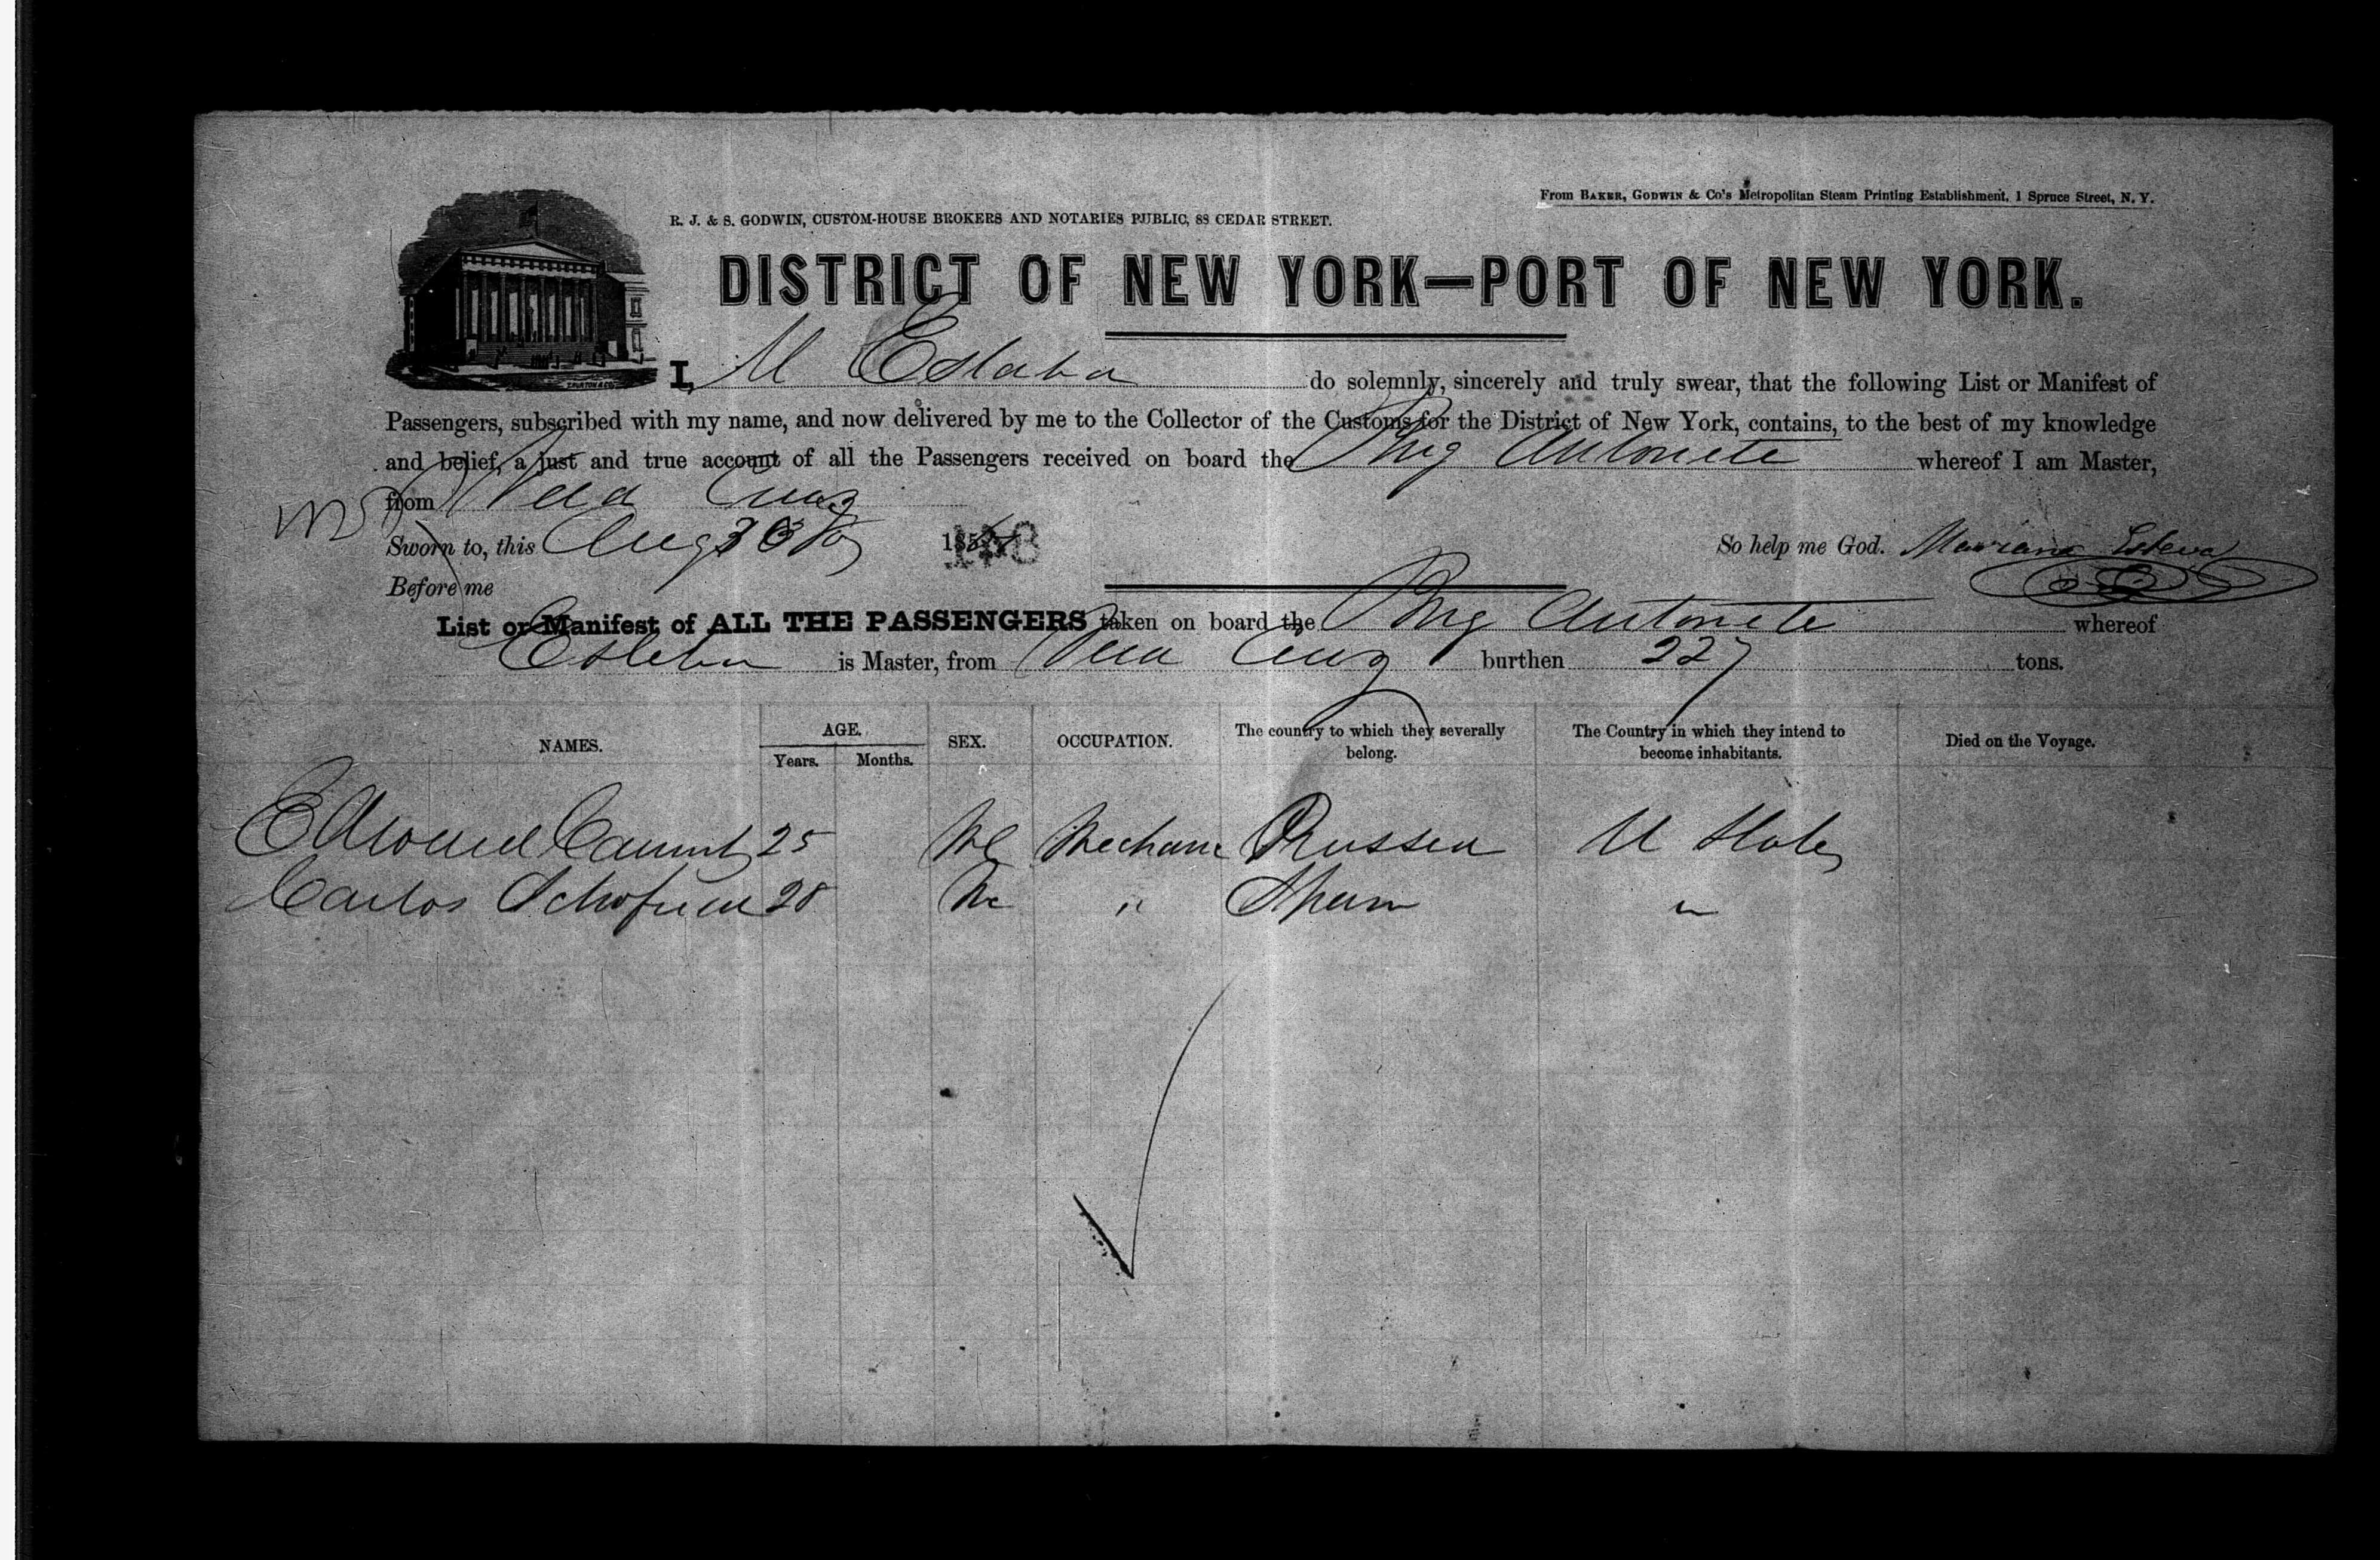 From BAKER, GODWIN & Co's Metropolitan Steam Printing Establishment, 1 Spruce Street, N. Y.
R. J. & S. GODWIN, CUSTOM-HOUSE BROKERS AND NOTARIES PUBLIC, 88 CEDAR STREET.
DISTRICT OF NEW YORK—PORT OF NEW YORK.
I, M do solemnly, sincerely and truly swear, that the following List or Manifest of
Passengers, subscribed with my name, and now delivered by me to the Collector of the Customs for the District of New York, contains, to the best of my knowledge
and belief, a just and true account of all the Passengers received on board the Brig Antonete whereof I am Master,
from Vera Cruz
Sworn to, this Aug 185 So help me God. Mariano Esteva
Before me
148
List or Manifest of ALL THE PASSENGERS taken on board the Brig Antonete whereof
is Master, from Vera Cruz burthen 227 tons.
NAMES. AGE. Years. Months. SEX. OCCUPATION. The country to which they severally belong. The Country in which they intend to become inhabitants. Died on the Voyage.
Edward 25 Prussia U States
Carlos 28 " Spain "